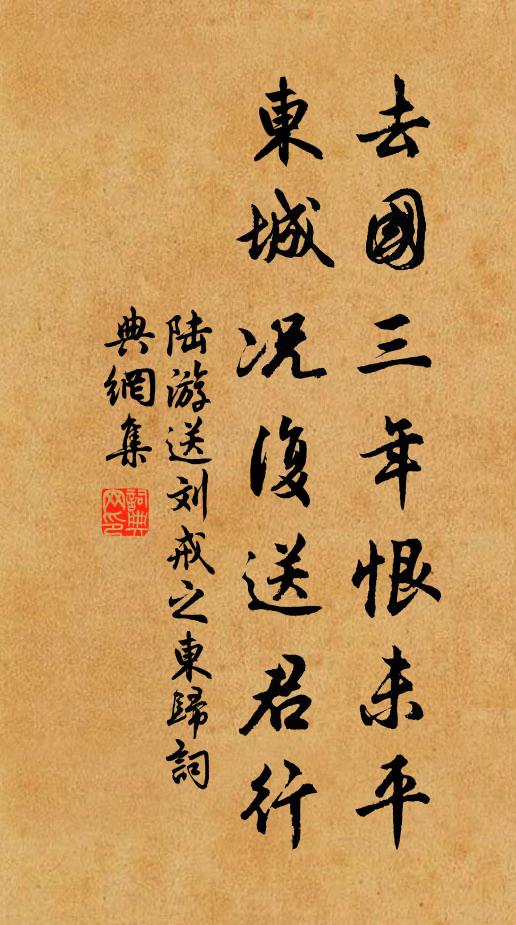 去國三年恨未平
東城况復送君行
陆游送刘戒之東歸詞
典網集
詞典网印